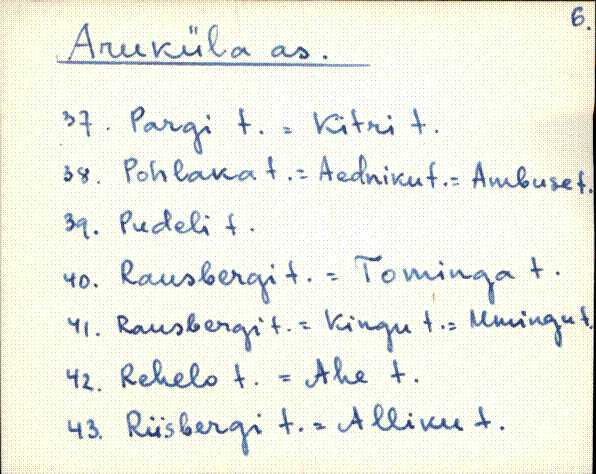 6.
Aruküla as.
37. Pargi t. = Kitri t.
38. Pohlaka t. = Aedniku t. = Ambuse t.
39. Pudeli t.
40. Rausbergi t. = Tominga t.
41. Rausbergi t. = Kingu t. = Mmingu t.
42. Rehelo t. = Ahe t.
43. Riisbergi t. = Alliku t.